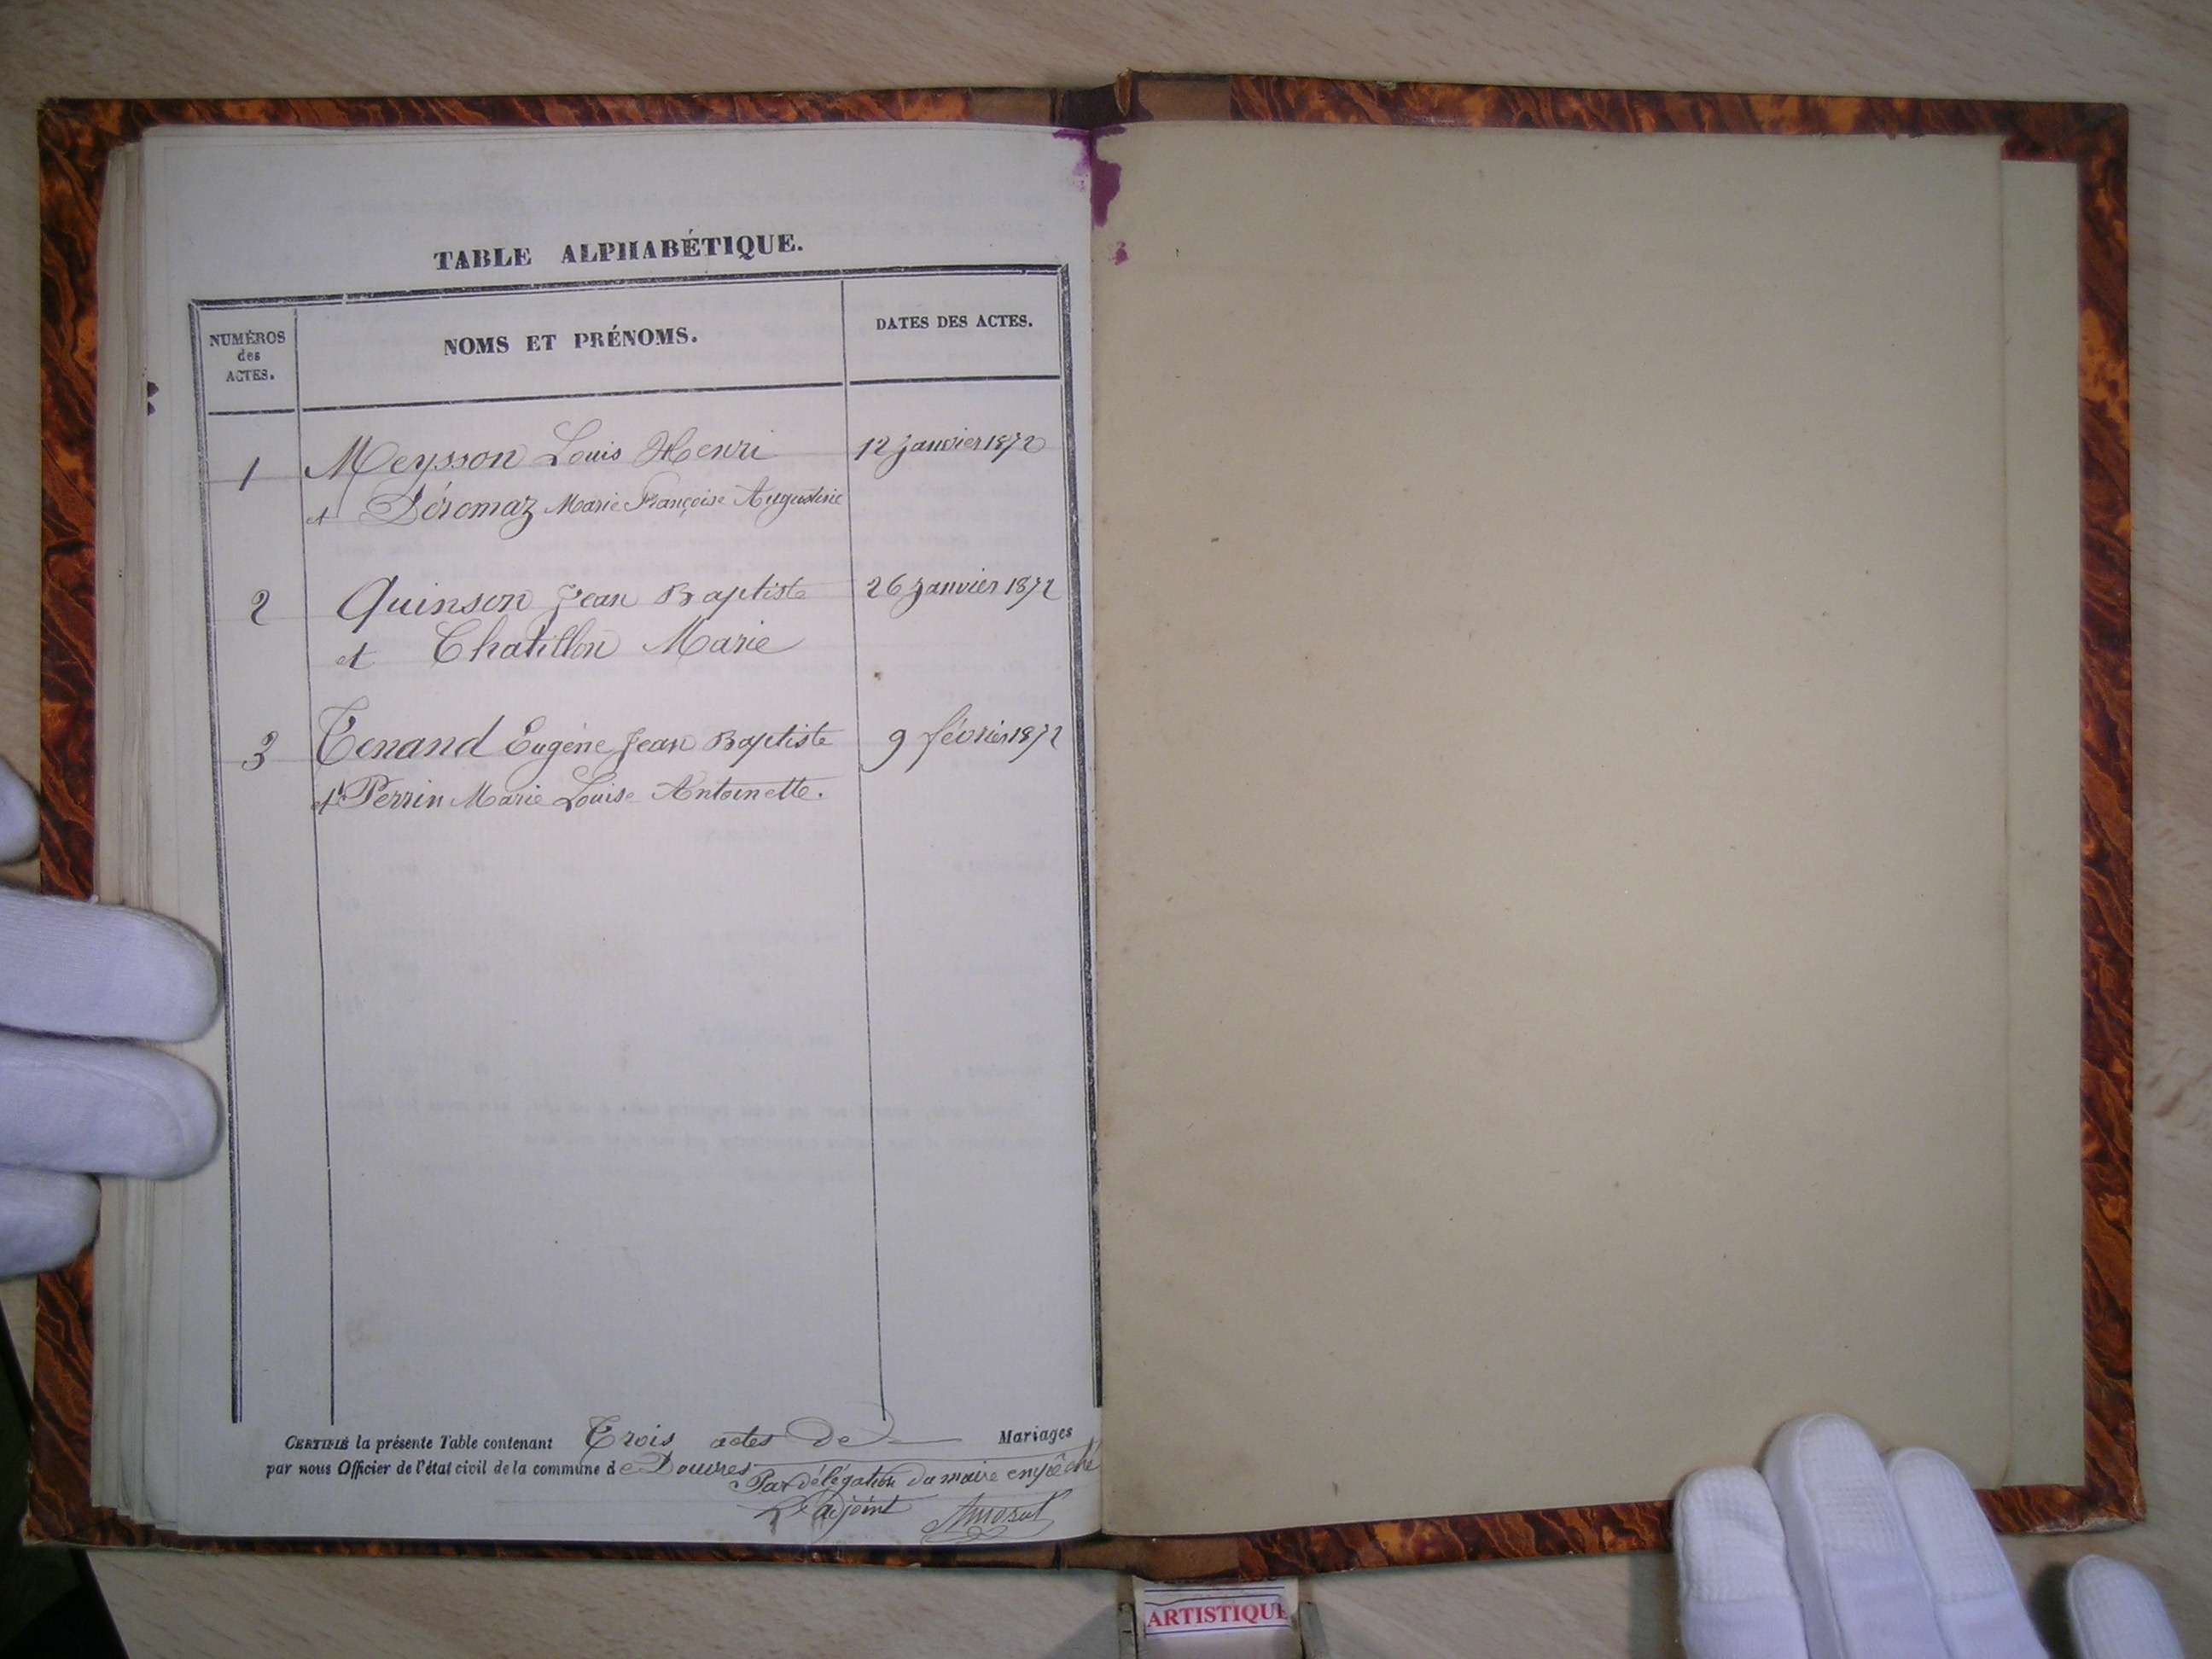 TABLE ALPHABÉTIQUE.
NUMÉROS
des
ACTES.
NOMS ET PRÉNOMS.
DATES DES ACTES.
1 Meysson Louis Henri 12 Janvier 1872
et Déromaz Marie Françoise Augustine
2 Quinson Jean Baptiste 26 Janvier 1872
et Chatillon Marie
3 Tenand Eugène Jean Baptiste 9 février 1872
et Perrin Marie Louise Antoinette.
CERTIFIÉ la présente Table contenant Trois actes de Mariages
par nous Officier de l'état civil de la commune de Douvres
Par délégation du maire empêché
L'adjoint
ARTISTIQUE